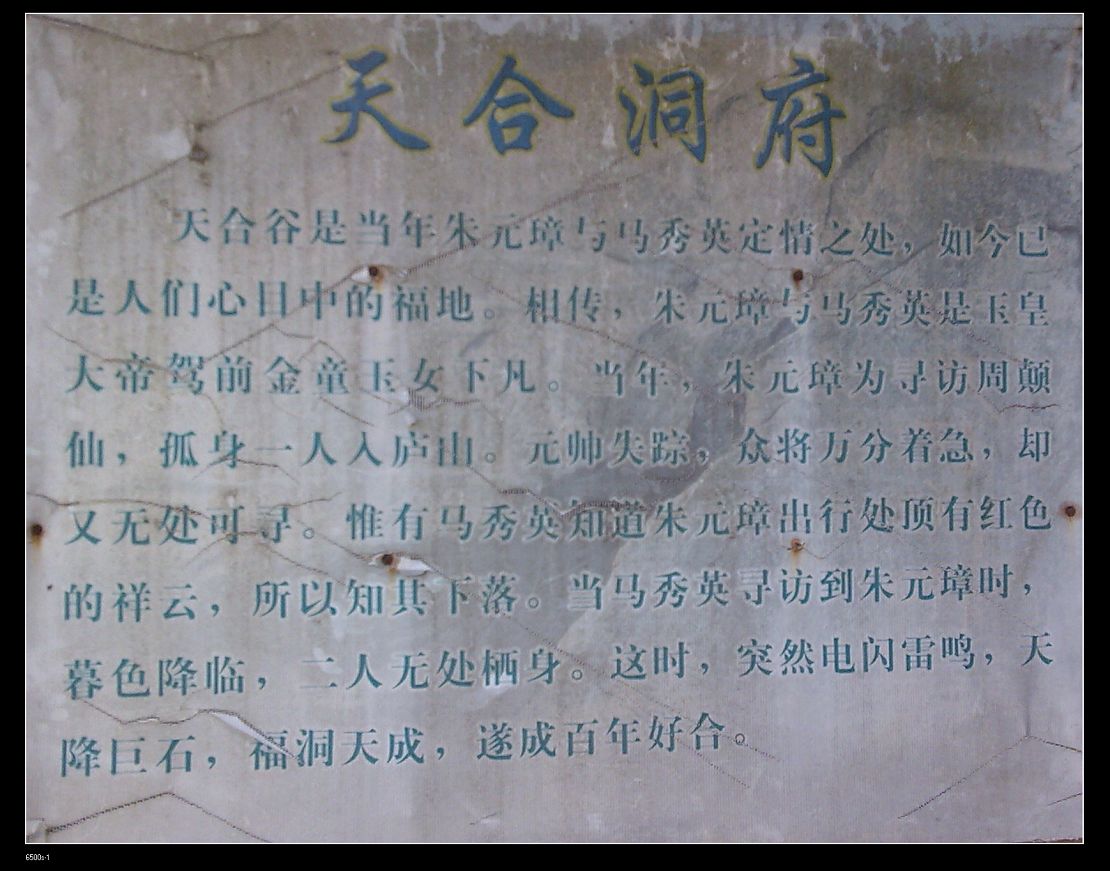 天合洞府
天合谷是当年朱元璋与马秀英定情之处，如今已
是人们心目中的福地。相传，朱元璋与马秀英是玉皇
大帝驾前金童玉女下凡。当年，朱元璋为寻访周颠
仙，孤身一人入庐山。元帅失踪，众将万分着急，却
又无处可寻。惟有马秀英知道朱元璋出行处顶有红色
的祥云，所以知其下落。当马秀英寻访到朱元璋时，
暮色降临，二人无处栖身。这时，突然电闪雷鸣，天
降巨石，福洞天成，遂成百年好合。
6500s-1